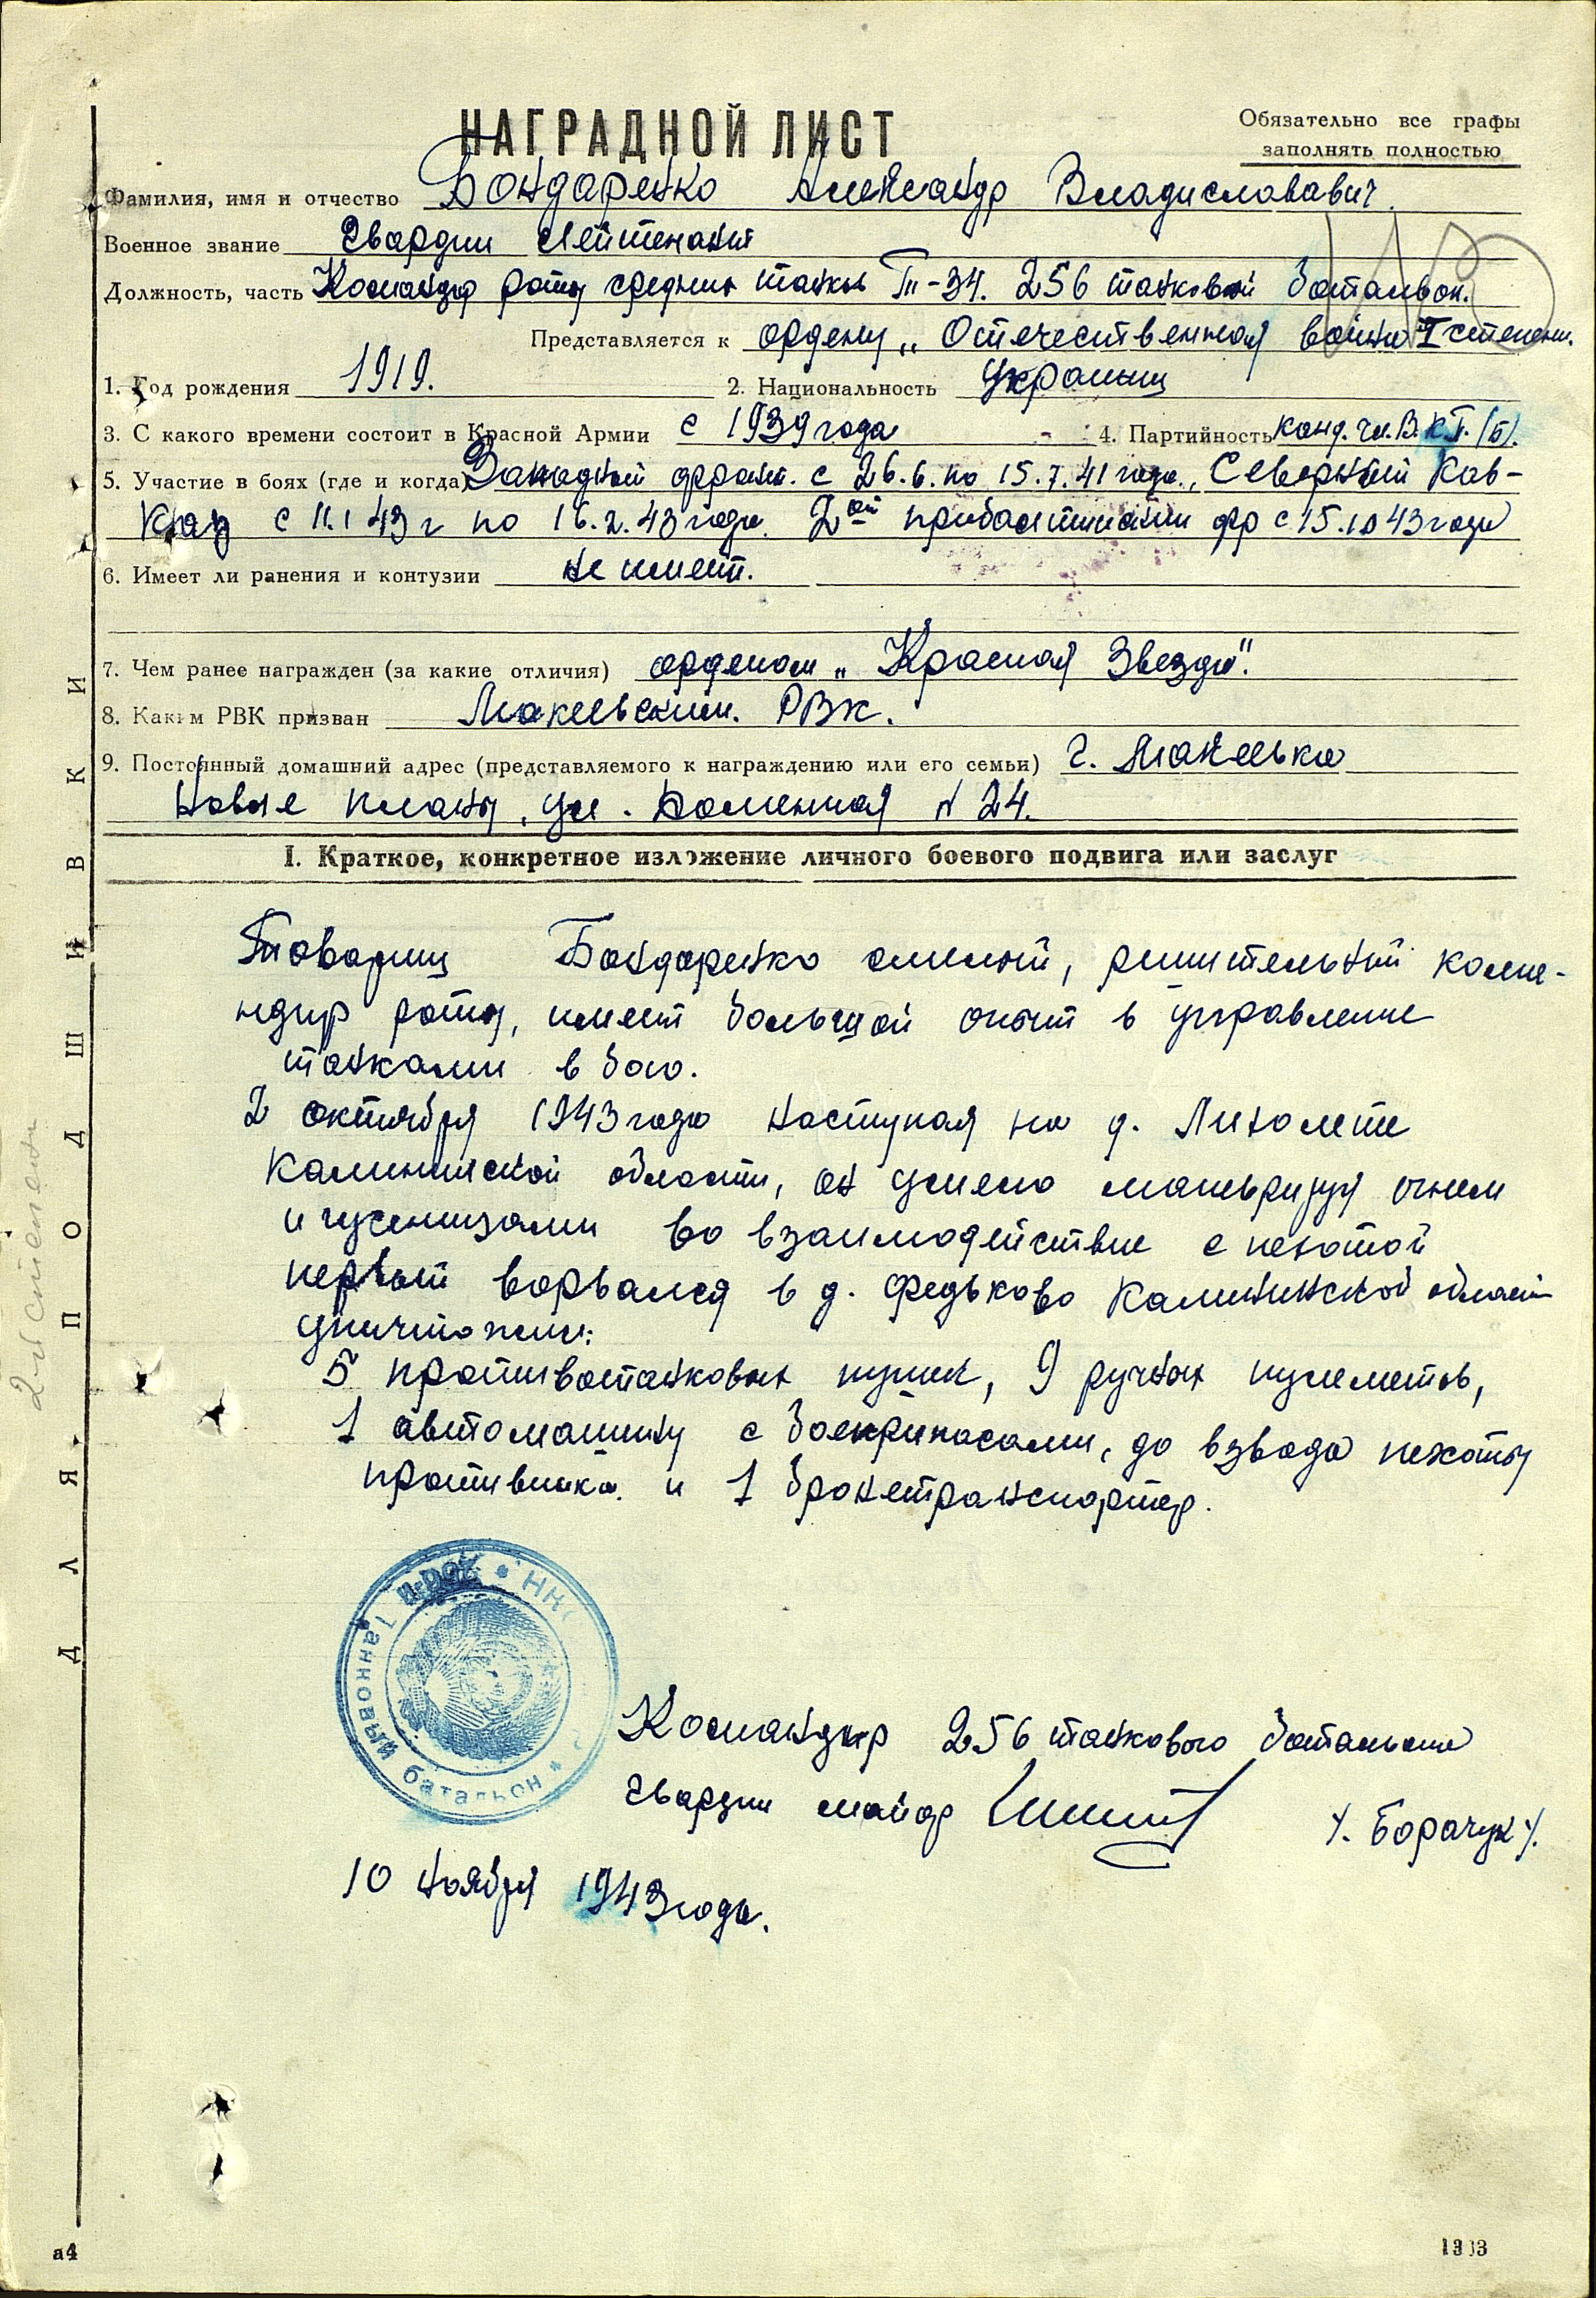 НАГРАДНОЙ ЛИСТ
Обязательно все графы
заполнять полностью
Фамилия, имя и отчество Бондаренко Александр Владиславович.
Военное звание Гвардии лейтенант
Должность, часть Командир роты средних танков Т-34. 256 танковый батальон.
Представляется к ордену „Отечественная война" I степени.
1. Год рождения 1919. 2. Национальность Украинец
3. С какого времени состоит в Красной Армии с 1939 года 4. Партийность канд. чл. В.К.П.(б).
5. Участие в боях (где и когда) Западный фронт. с 26.6. по 15.7.41 года., Северный Кав-
каз с 11.1 43 г по 16.2.43 года. 2ой прибалтийский фр с 15.10 43 года
6. Имеет ли ранения и контузии не имеет.
7. Чем ранее награжден (за какие отличия) орденом „Красная Звезда".
8. Каким РВК призван Макеевским. РВК.
9. Постоянный домашний адрес (представляемого к награждению или его семьи) г. Макеевка
Новые планы, ул. Доменная N 24.
I. Краткое, конкретное изложение личного боевого подвига или заслуг
Товарищ Бондаренко смелый, решительный кома-
ндир роты, имеет большой опыт в управление
танками в бою.
2 октября 1943 года наступая на д. Лихолете
Калининской области, он умело маневрируя огнем
и гусеницами во взаимодействие с пехотой
первый ворвался в д. Федьково Калининской област
уничтожил:
5 противотанковых пушек, 9 ручных пулеметов,
1 автомашину с боеприпасами, до взвода пехоты
противника. и 1 бронетранспортер.
НК
Танковый батальон
Командир 256 танкового батальона
гвардии майор /. Борачук /.
10 ноября 1943 года.
ДЛЯ ПОДШИВКИ
2-й степени
а4